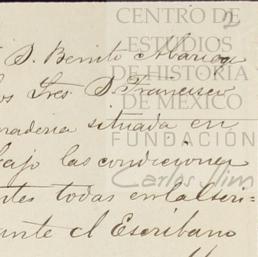 CENTRO DE
ESTUDIOS
DE HISTORIA
DE MÉXICO
FUNDACIÓN
Carlos Slim
2
D. Benito Abario
los Sres. D. Francisco
naderia situada en
bajo las condiciones
ntes todas en la escri-
ante el Escribano